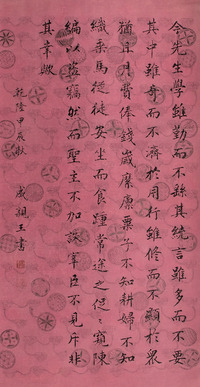 今先生學雖勤而不繇其統言雖多而不要
其中雖奇而不濟於用行雖修而不顯於眾
猶且月費俸錢歲糜廩粟子不知耕婦不知
織乘馬從徒安坐而食踵常途之促々窺陳
編以盜竊然而聖主不加誅宰臣不見斥非
其幸歟
乾隆甲辰秋
成親王書